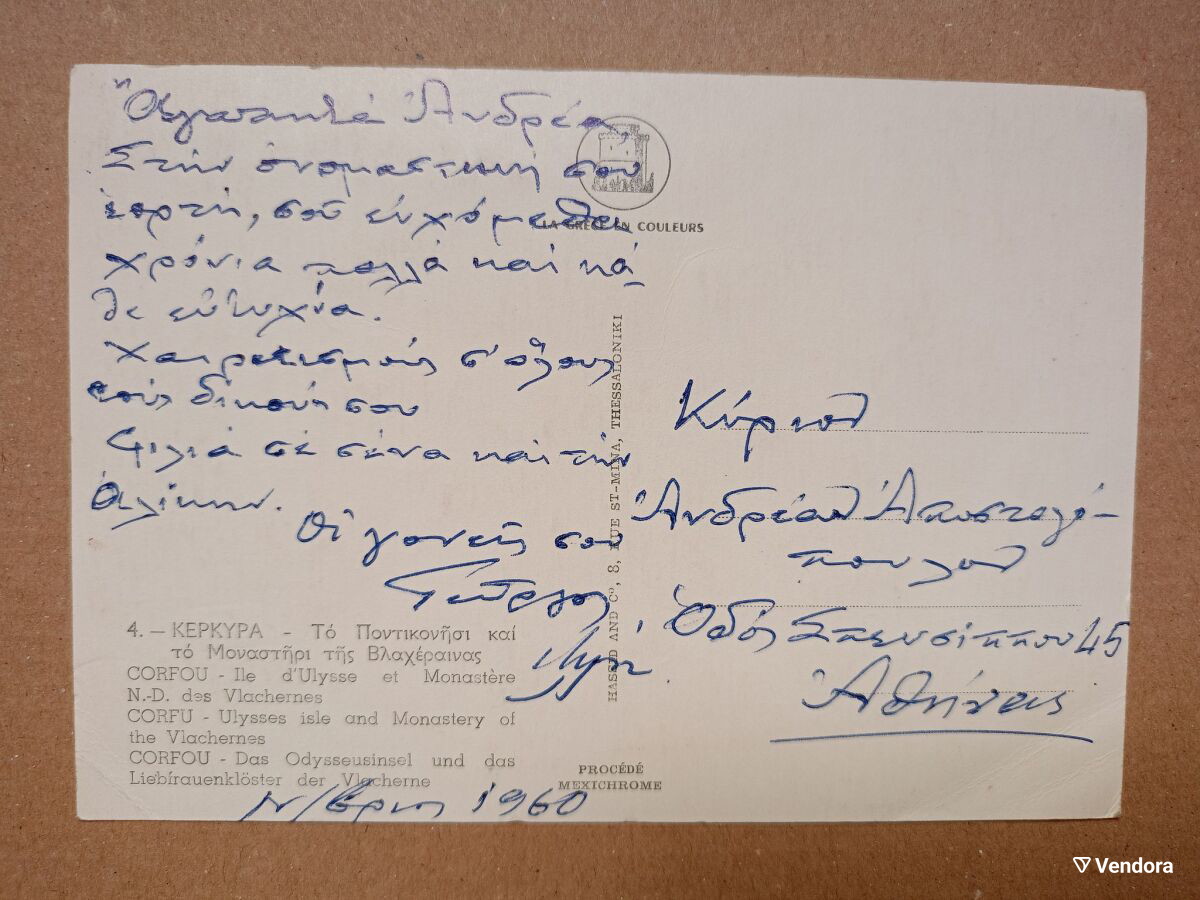 Ἀγαπητέ Ἀνδρέα,
Στήν ὀνομαστική σου
ἑορτή, σοῦ εὐχόμεθα
χρόνια πολλά καί κά-
θε εὐτυχία.
Χαιρετισμούς σ' ὅλους
τούς δικούς σου
Φιλιά σέ σένα καί τήν
Ἀλίκην.
Οἱ γονεῖς σου
Γεῶργος,
4. — ΚΕΡΚΥΡΑ - Τό Ποντικονῆσι καί
τό Μοναστῆρι τῆς Βλαχέραινας
CORFOU - Ile d'Ulysse et Monastère
N.-D. des Vlachernes
CORFU - Ulysses isle and Monastery of
the Vlachernes
CORFOU - Das Odysseusinsel und das
Liebfrauenklöster der Vlacherne
Ν/βριος 1960
LA GRÈCE EN COULEURS
HASSID AND Cº, 8, RUE ST-MINA, THESSALONIKI
PROCÉDÉ
MEXICHROME
Κύριον
Ἀνδρέαν Ἀποστολό-
πουλον
Ὁδός Σπευσίππου 45
Ἀθήνας
Vendora